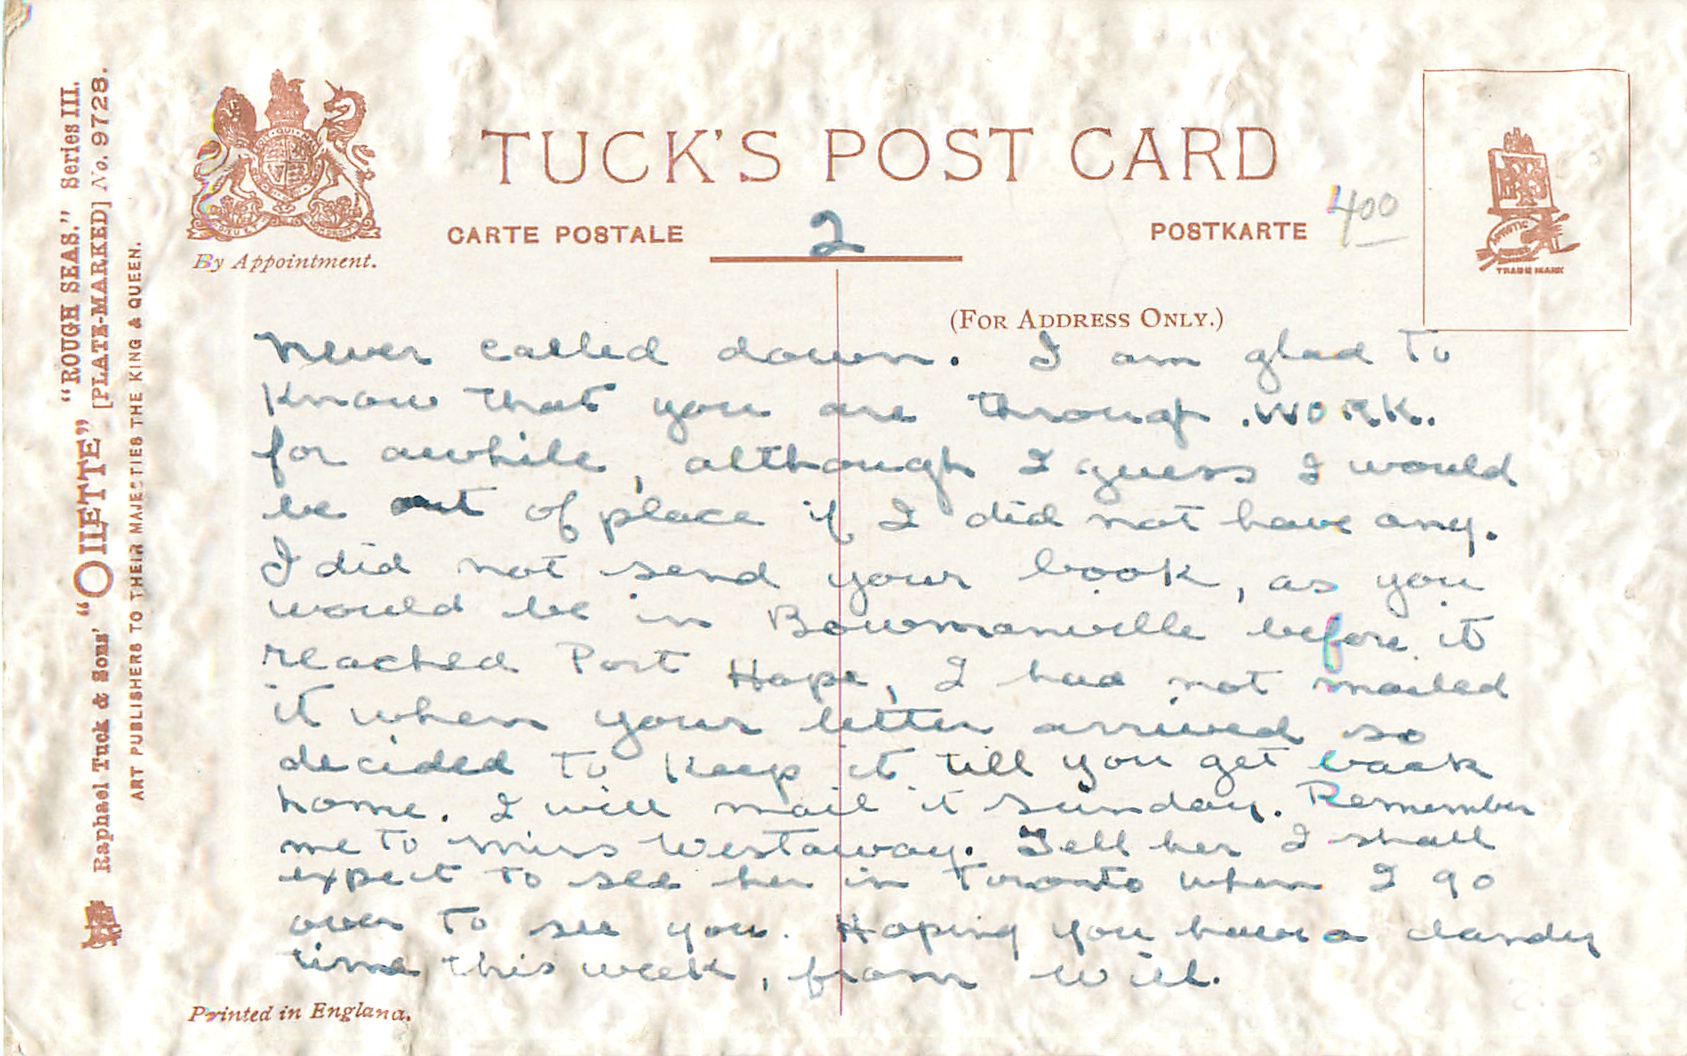 TUCK'S POST CARD
CARTE POSTALE
2
POSTKARTE
400
By Appointment.
(FOR ADDRESS ONLY.)
TRADE MARK
never called down. I am glad to
know that you are through .WORK.
for awhile, although I guess I would
be out of place if I did not have any.
I did not send your book, as you
would be in Bowmanville before it
reached Port Hope, I had not mailed
it when your letter arrived so
decided to keep it till you get back
home. I will mail it Sunday. Remember
me to Miss Westaway. Tell her I shall
expect to see her in Toronto when I go
over to see you. Hoping you have a dandy
time this week, from Will.
Printed in England.
Raphael Tuck & Sons' "OILETTE" "ROUGH SEAS." Series III.
[PLATE-MARKED] No. 9728.
ART PUBLISHERS TO THEIR MAJESTIES THE KING & QUEEN.